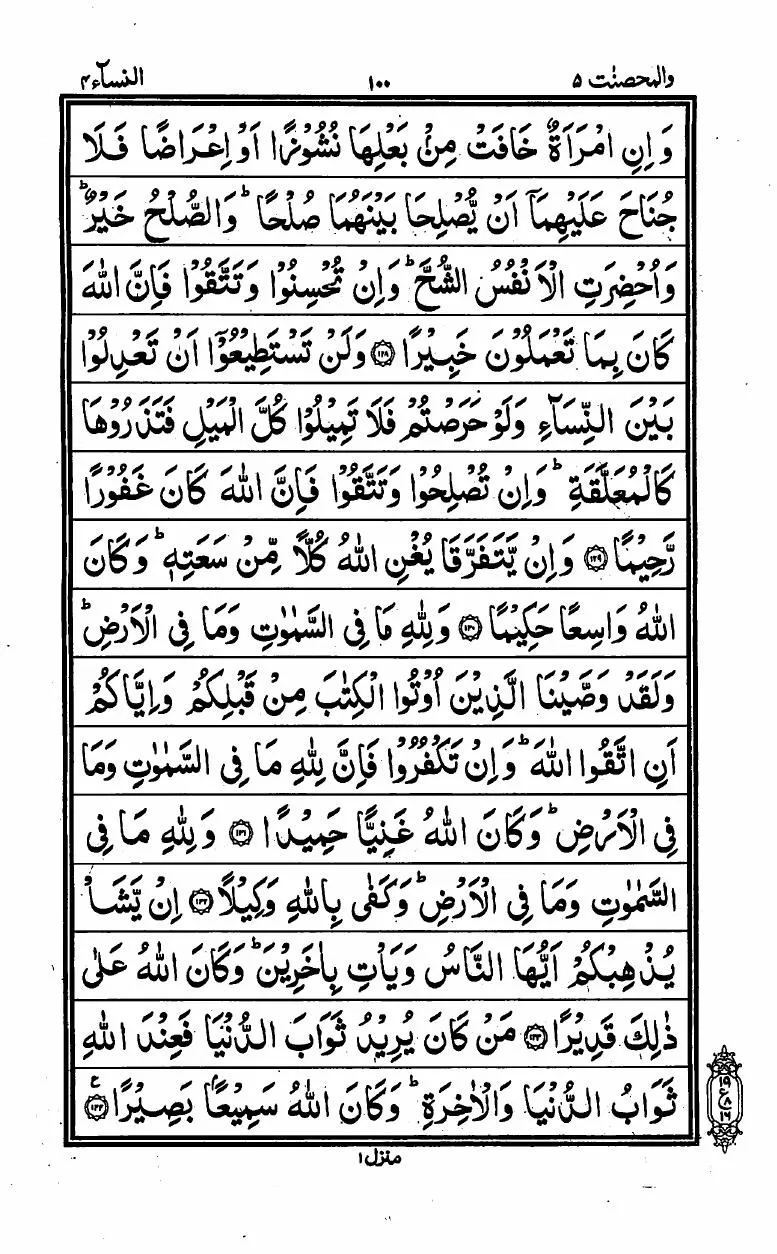 والمحصنٰت ۵ ۱۰۰ النسآء ۴
وَ اِنِ امْرَاَةٌ خَافَتْ مِنْۢ بَعْلِهَا نُشُوْزًا اَوْ اِعْرَاضًا فَلَا
جُنَاحَ عَلَيْهِمَاۤ اَنْ يُّصْلِحَا بَيْنَهُمَا صُلْحًا ؕ وَالصُّلْحُ خَيْرٌ ؕ
وَاُحْضِرَتِ الْاَنْفُسُ الشُّحَّ ؕ وَاِنْ تُحْسِنُوْا وَتَتَّقُوْا فَاِنَّ اللّٰهَ
كَانَ بِمَا تَعْمَلُوْنَ خَبِيْرًا ۝۱۲۸ وَلَنْ تَسْتَطِيْعُوْۤا اَنْ تَعْدِلُوْا
بَيْنَ النِّسَآءِ وَلَوْ حَرَصْتُمْ فَلَا تَمِيْلُوْا كُلَّ الْمَيْلِ فَتَذَرُوْهَا
كَالْمُعَلَّقَةِ ؕ وَاِنْ تُصْلِحُوْا وَتَتَّقُوْا فَاِنَّ اللّٰهَ كَانَ غَفُوْرًا
رَّحِيْمًا ۝۱۲۹ وَاِنْ يَّتَفَرَّقَا يُغْنِ اللّٰهُ كُلًّا مِّنْ سَعَتِهٖ ؕ وَكَانَ
اللّٰهُ وَاسِعًا حَكِيْمًا ۝۱۳۰ وَلِلّٰهِ مَا فِى السَّمٰوٰتِ وَمَا فِى الْاَرْضِ ؕ
وَلَقَدْ وَصَّيْنَا الَّذِيْنَ اُوْتُوا الْكِتٰبَ مِنْ قَبْلِكُمْ وَاِيَّاكُمْ
اَنِ اتَّقُوا اللّٰهَ ؕ وَاِنْ تَكْفُرُوْا فَاِنَّ لِلّٰهِ مَا فِى السَّمٰوٰتِ وَمَا
فِى الْاَرْضِ ؕ وَكَانَ اللّٰهُ غَنِيًّا حَمِيْدًا ۝۱۳۱ وَلِلّٰهِ مَا فِى
السَّمٰوٰتِ وَمَا فِى الْاَرْضِ ؕ وَكَفٰى بِاللّٰهِ وَكِيْلًا ۝۱۳۲ اِنْ يَّشَاْ
يُذْهِبْكُمْ اَيُّهَا النَّاسُ وَيَاْتِ بِاٰخَرِيْنَ ؕ وَكَانَ اللّٰهُ عَلٰى
ذٰلِكَ قَدِيْرًا ۝۱۳۳ مَنْ كَانَ يُرِيْدُ ثَوَابَ الدُّنْيَا فَعِنْدَ اللّٰهِ
ثَوَابُ الدُّنْيَا وَالْاٰخِرَةِ ؕ وَكَانَ اللّٰهُ سَمِيْعًۢا بَصِيْرًا ۝۱۳۴ ع
۱۹
ع ۸
۱۶
منزل ۱